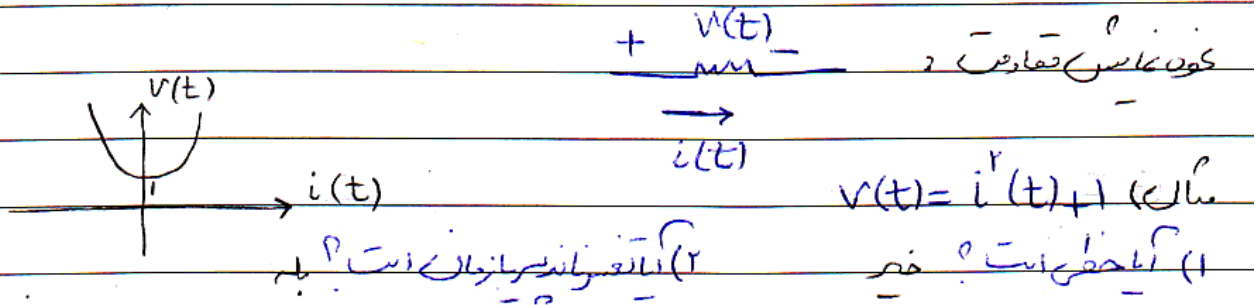 نحوه نمایش مقاومت : + v(t) −
i(t)
v(t)
i(t)
1
مثال) v(t) = i²(t)+1
۱) آیا خطی است؟ خیر ۲) آیا تغییرناپذیر با زمان است؟ بله